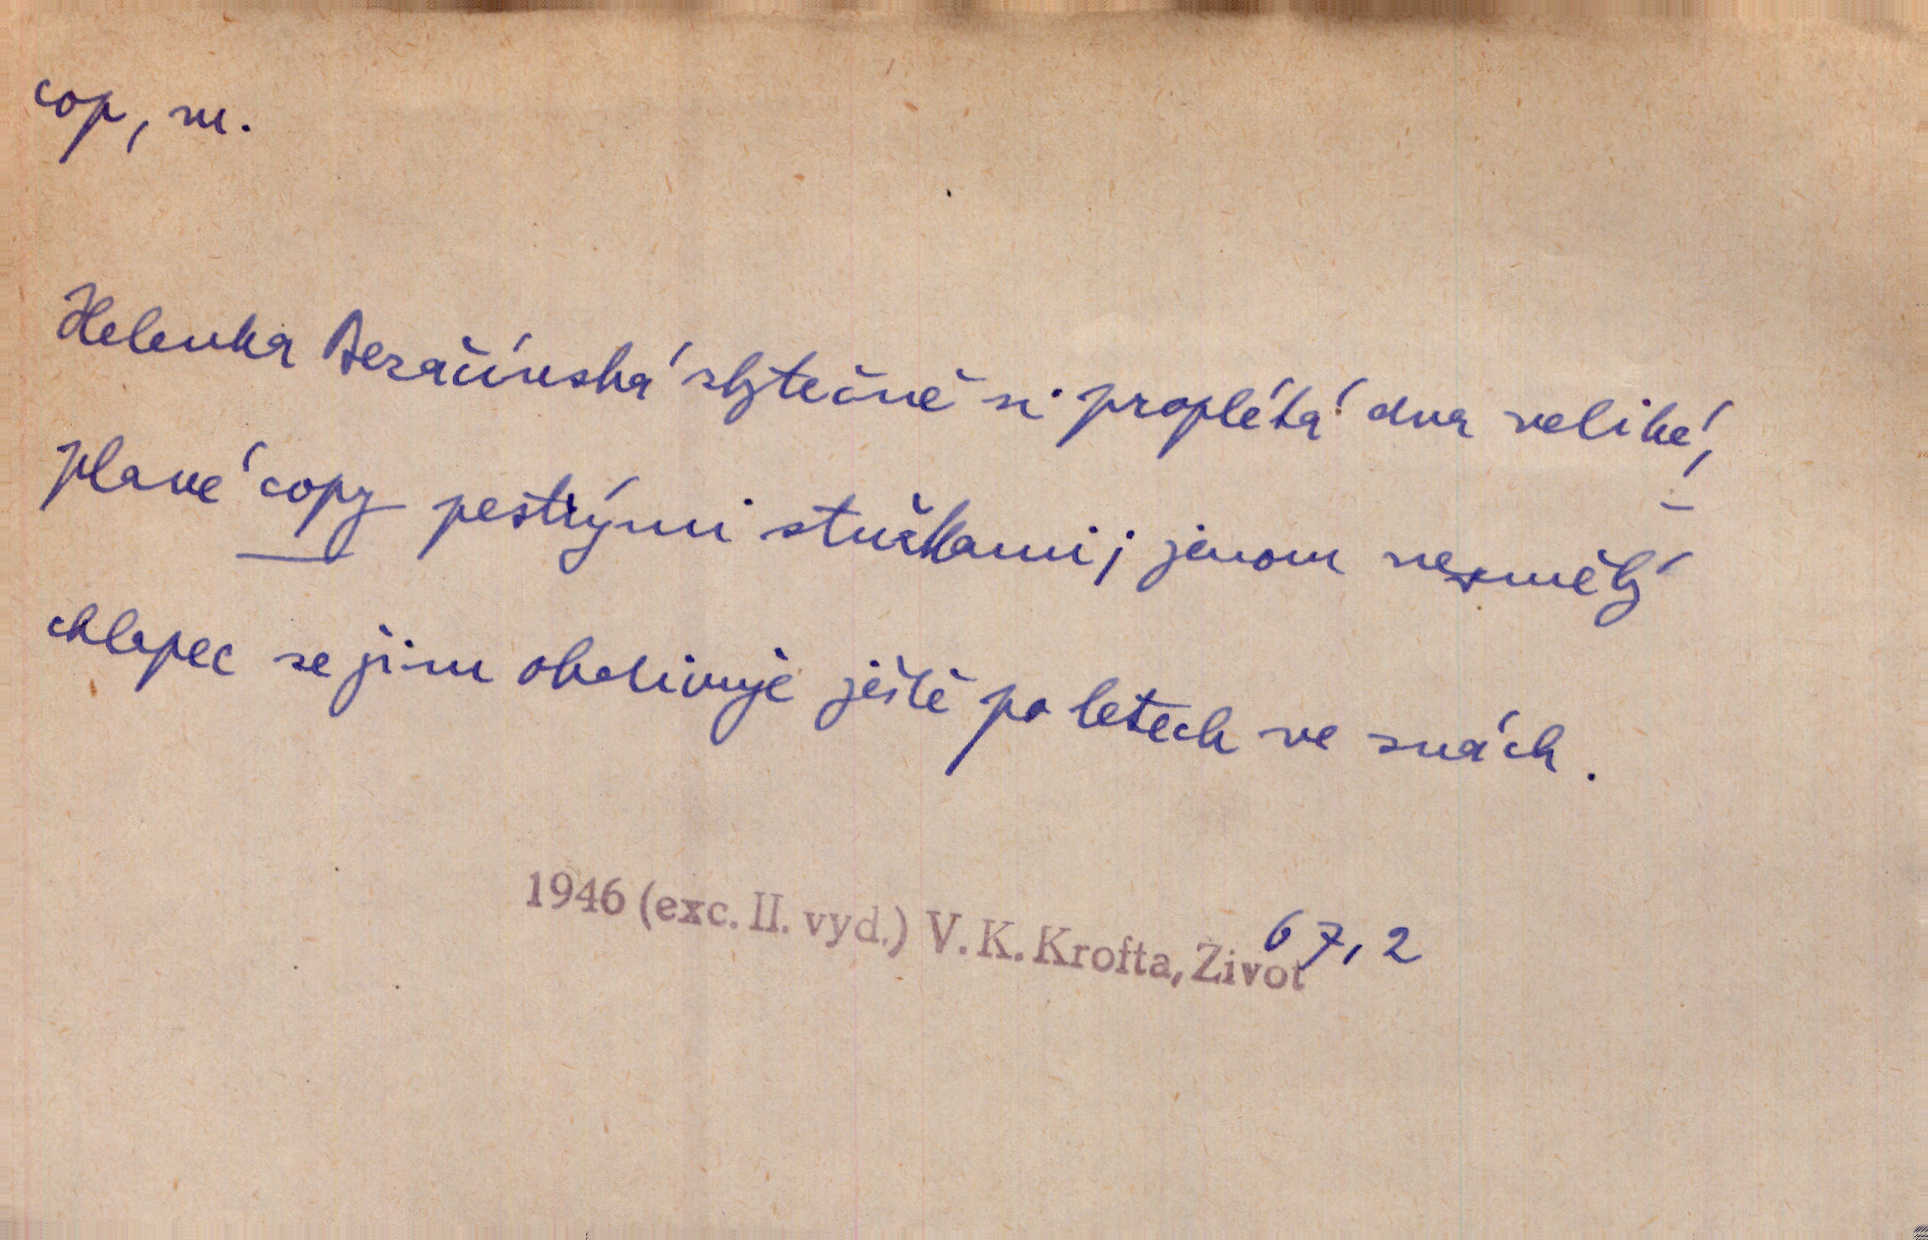 cop, m.
Helenka Beračínská zbytečně si proplétá dva veliké,
plavé copy pestrými stužkami; jenom nesmělý
chlapec se jim obdivuje ještě po letech ve snách.
1946 (exc. II. vyd.) V. K. Krofta, Život 67,2